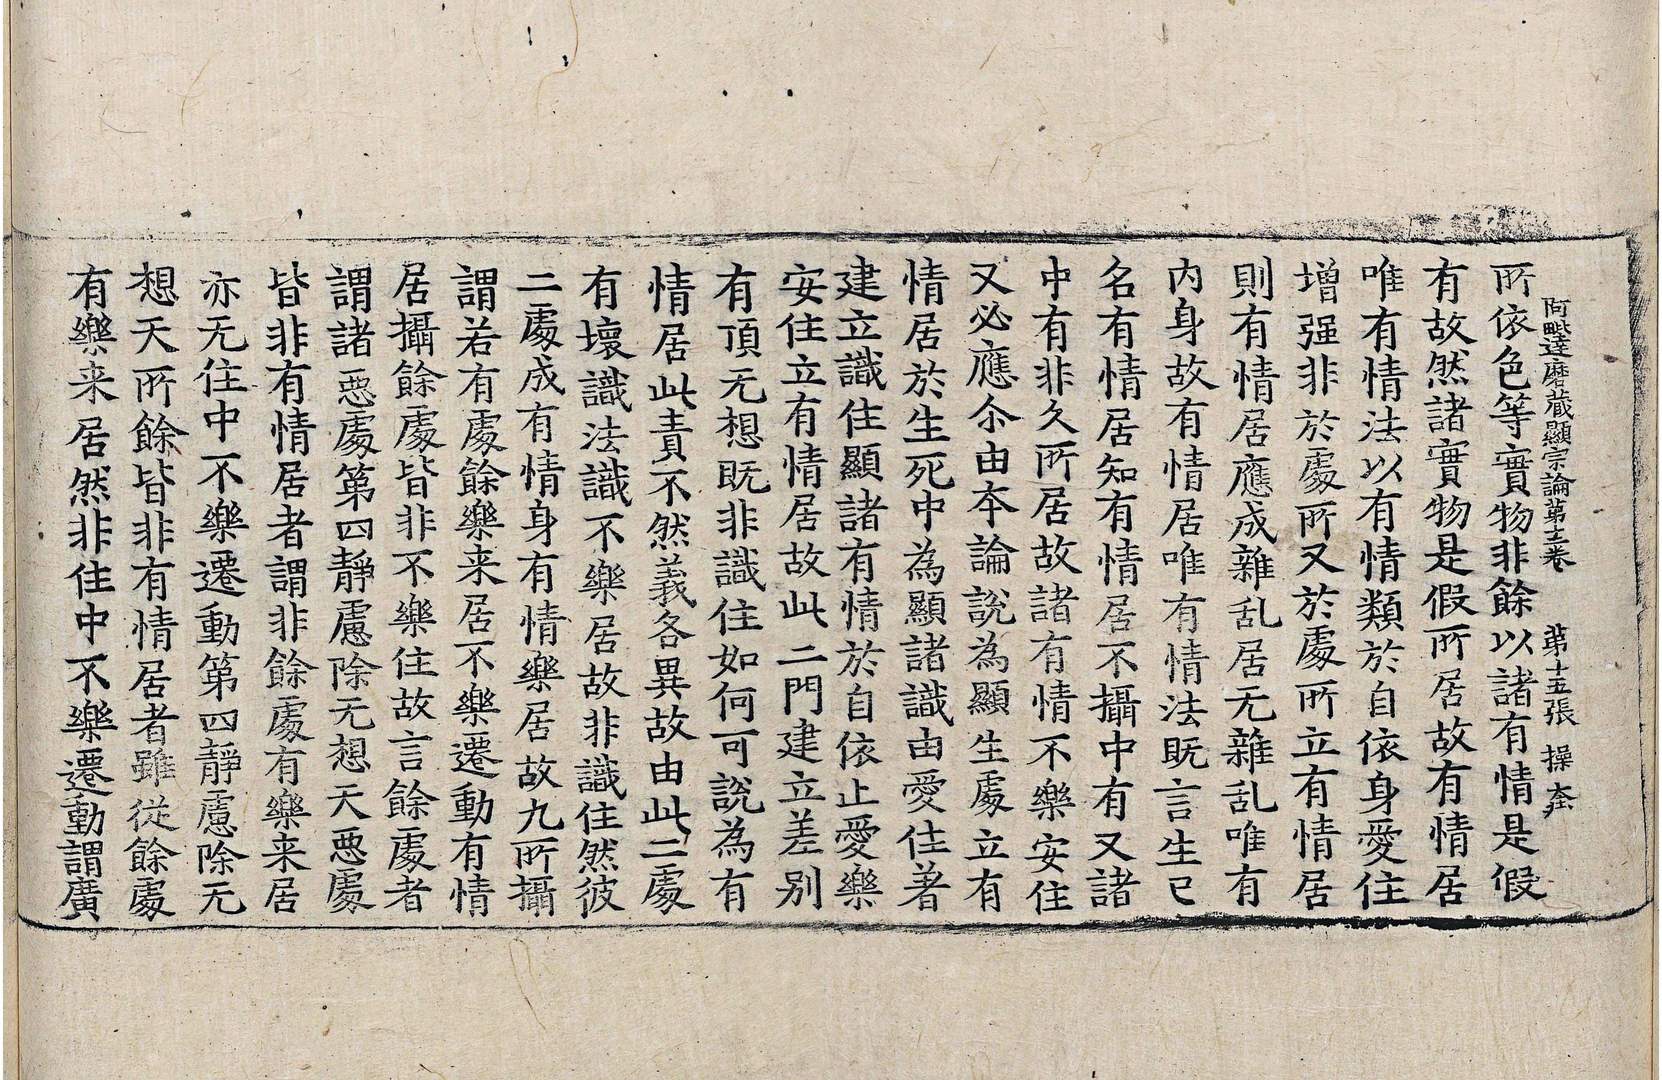 阿毗達磨藏顯宗論第十二卷　第十五張　操
所依色等實物非餘以諸有情是假
有故然諸實物是假所居故有情居
唯有情法以有情類於自依身愛住
增强非於處所又於處所立有情居
則有情居應成雜乱居无雜乱唯有
内身故有情居唯有情法既言生已
名有情居知有情居不攝中有又諸
中有非久所居故諸有情不樂安住
又必應尒由本論說為顯生處立有
情居於生死中為顯諸識由愛住著
建立識住顯諸有情於自依止愛樂
安住立有情居故此二門建立差别
有頂无想既非識住如何可說為有
情居此責不然義各異故由此二處
有壞識法識不樂居故非識住然彼
二處成有情身有情樂居故九所攝
謂若有處餘樂来居不樂遷動有情
居攝餘處皆非不樂住故言餘處者
謂諸惡處第四靜慮除无想天惡處
皆非有情居者謂非餘處有樂来居
亦无住中不樂遷動第四靜慮除无
想天所餘皆非有情居者雖從餘處
有樂来居然非住中不樂遷動謂廣